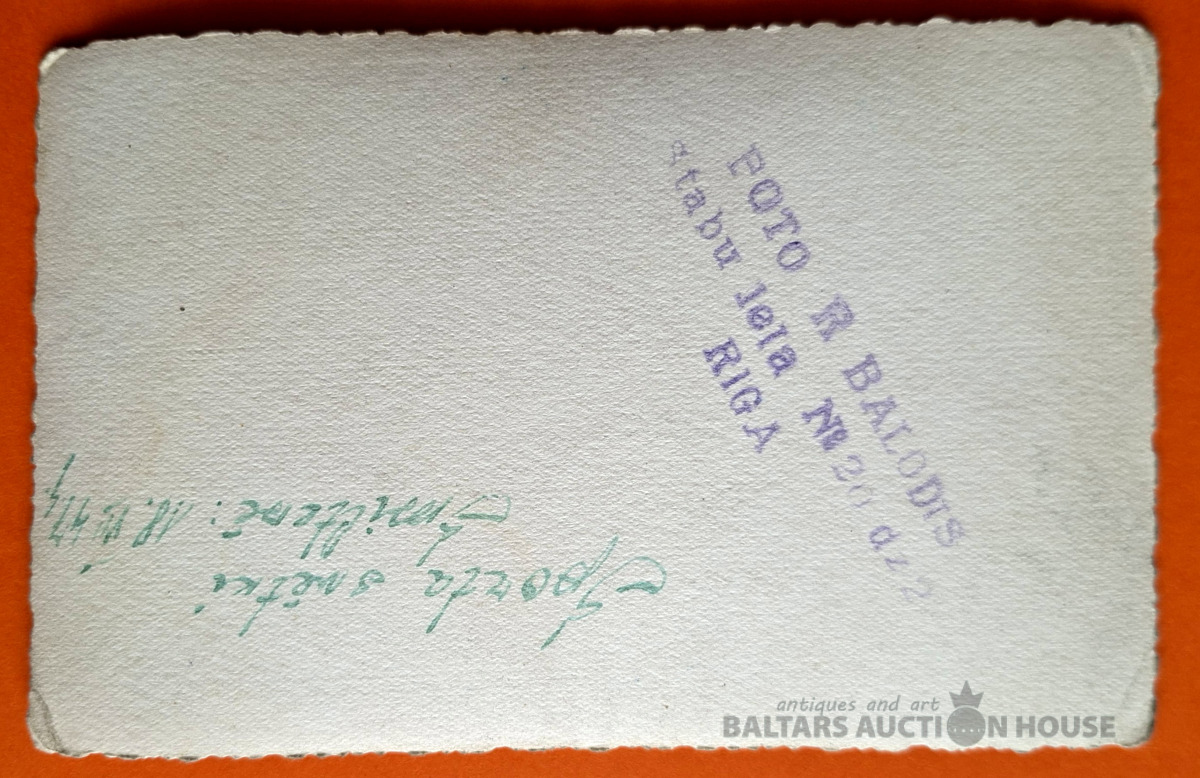 FOTO R BALODIS
Stabu iela № 20 dz 2
RIGA
Sporta svētki
Smiltenē. 18.
antiques and art
BALTARS AUCTION HOUSE